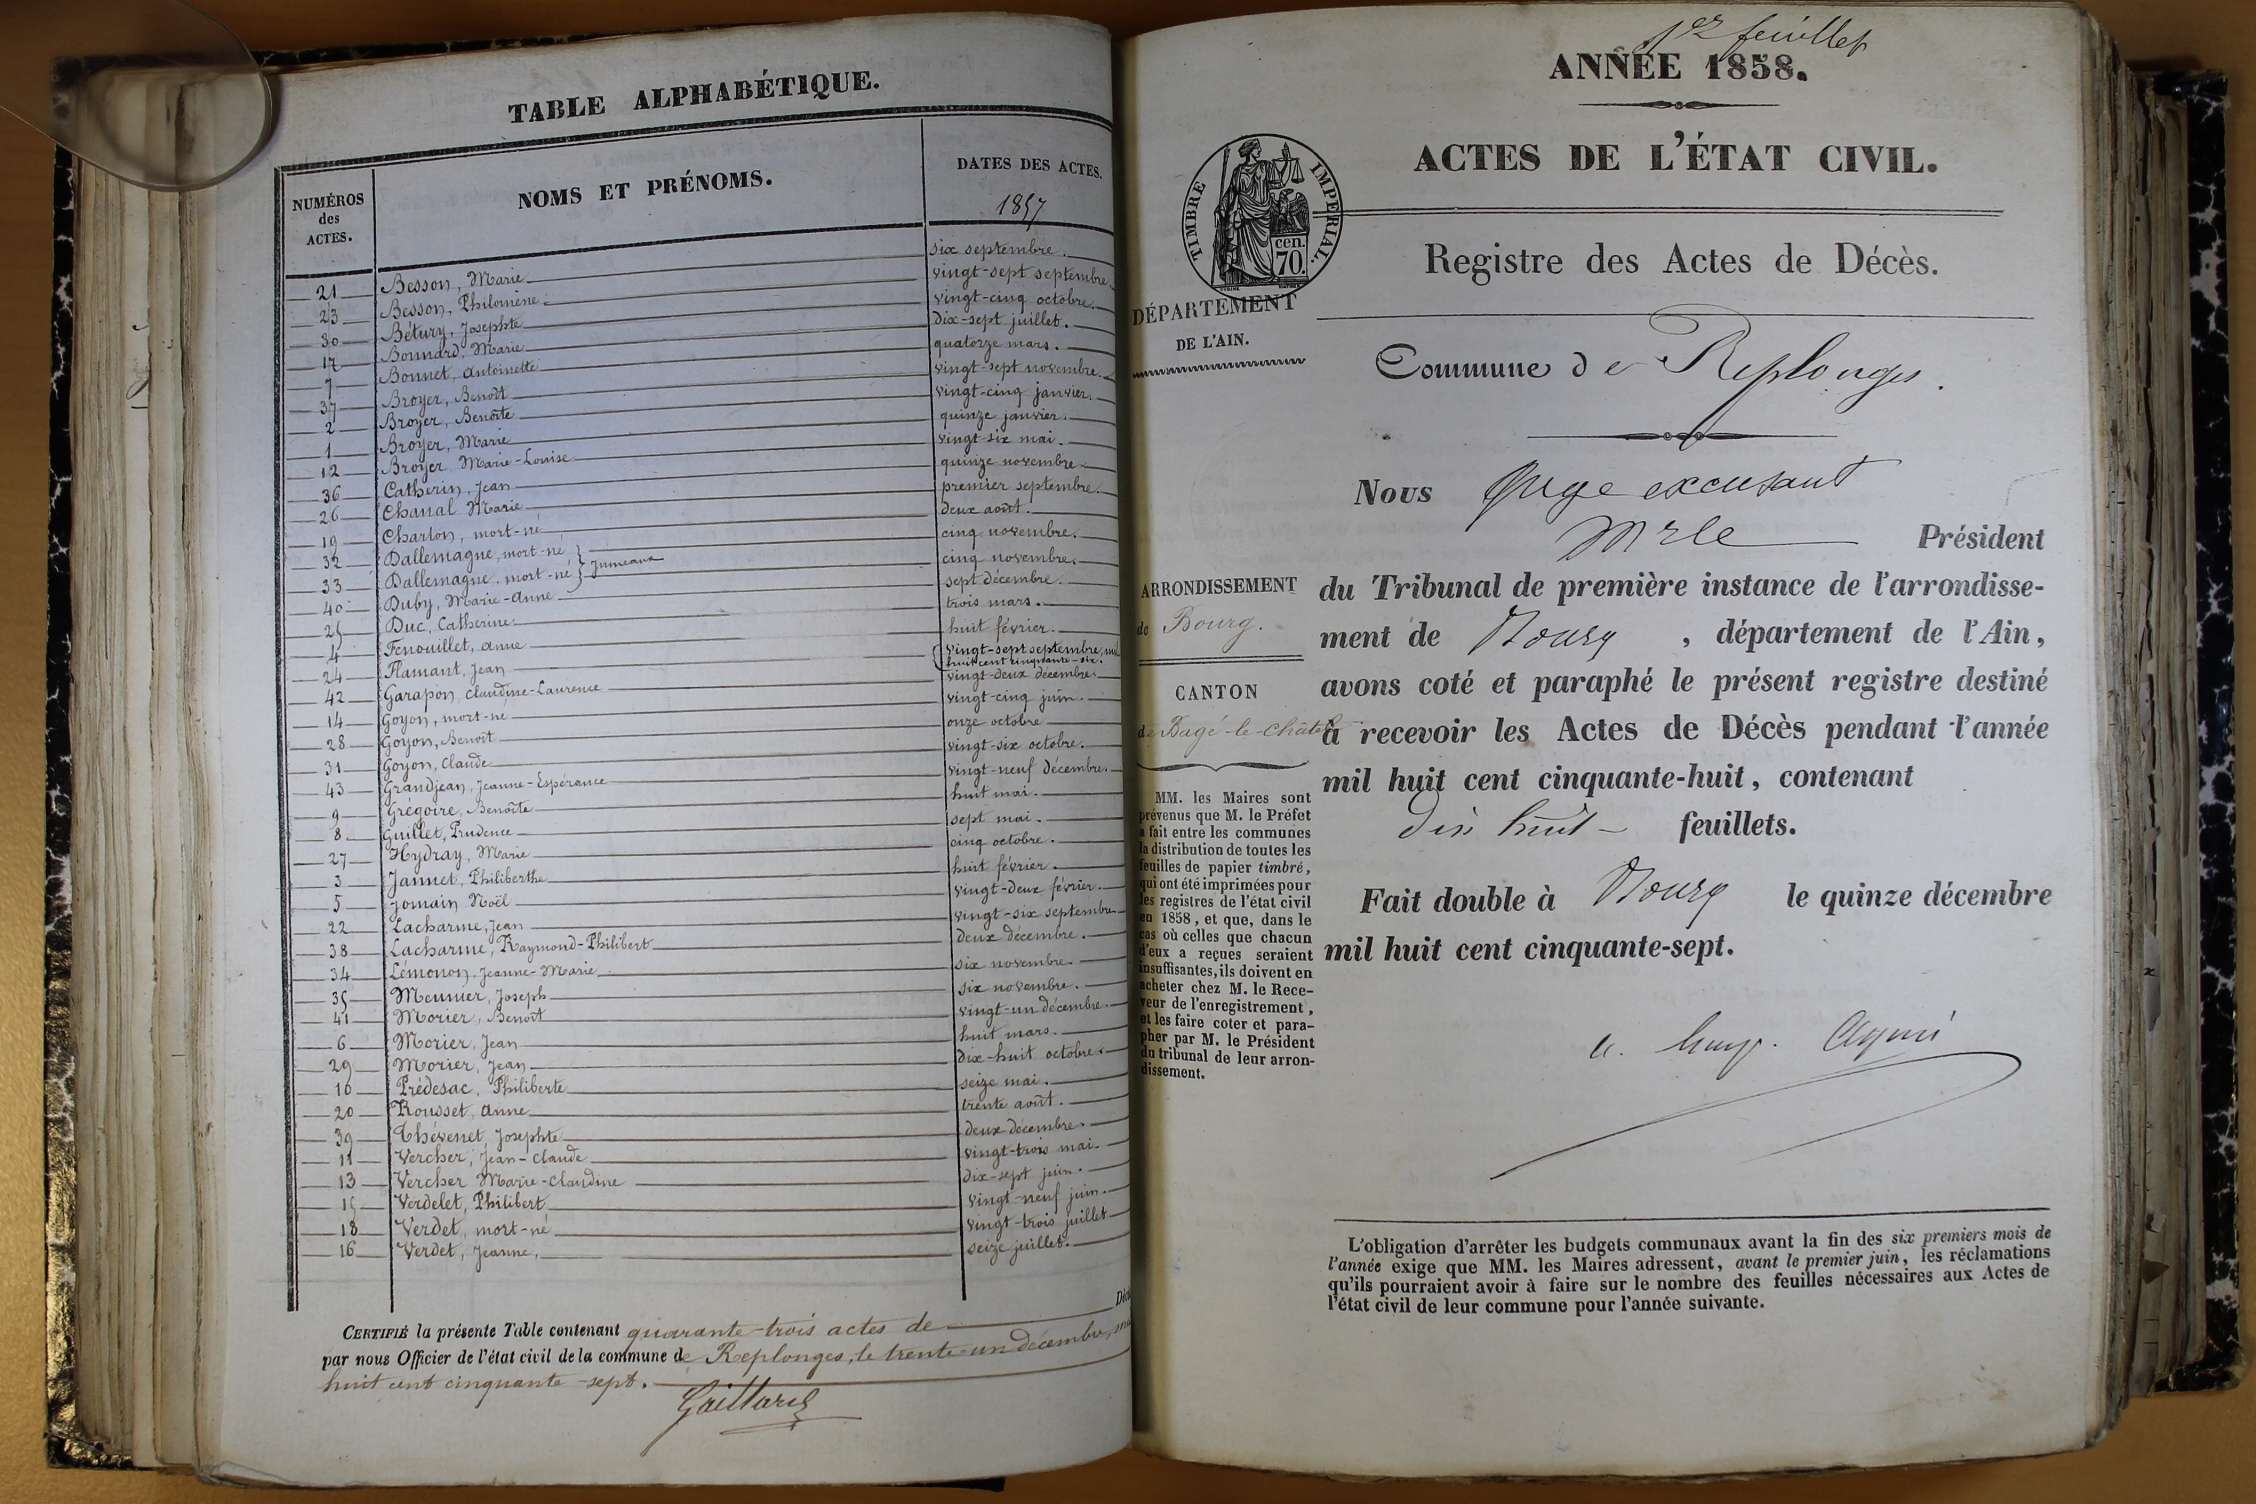 TABLE ALPHABÉTIQUE.
NUMÉROS des ACTES. NOMS ET PRÉNOMS. DATES DES ACTES.
1857
21 Besson, Marie six septembre.
23 Besson, Philomène vingt-sept septembre.
30 Bétury, Josephte vingt-cinq octobre.
17 Bonnard, Marie dix-sept juillet.
7 Bonnet, Antoinette quatorze mars.
37 Broyer, Benoît vingt-sept novembre.
2 Broyer, Benoîte vingt-cinq janvier.
1 Broyer, Marie quinze janvier.
12 Broyer Marie-Louise vingt-six mai.
36 Catherin, Jean quinze novembre.
26 Chanal Marie premier septembre.
19 Charlon, mort-né deux août.
32 Dallemagne, mort-né } Jumeaux cinq novembre.
33 Dallemagne, mort-né } cinq novembre.
40 Duby, Marie-Anne sept décembre.
25 Duc, Catherine trois mars.
4 Fenouillet, Anne huit février.
24 Flamant, Jean vingt-sept septembre, mil
huit cent cinquante-six.
42 Garapon, Claudine-Laurence vingt-deux décembre.
14 Goyon, mort-né vingt-cinq juin.
28 Goyon, Benoît onze octobre
31 Goyon, Claude vingt-six octobre.
43 Grandjean, Jeanne-Espérance vingt-neuf décembre.
9 Grégoire, Benoîte huit mai.
8 Guillet, Prudence sept mai.
27 Hydray, Marie cinq octobre.
3 Jannet, Philiberthe huit février.
5 Jomain Noël vingt-deux février.
22 Lacharme, Jean vingt-six septembre
38 Lacharme, Raymond-Philibert deux décembre.
34 Lémonon, Jeanne-Marie six novembre.
35 Meunier, Joseph six novembre.
41 Morier, Benoît vingt-un décembre.
6 Morier, Jean huit mars.
29 Morier, Jean dix-huit octobre.
10 Prédesac, Philiberte seize mai.
20 Rousset, Anne trente août.
39 Thévenet, Josephte deux décembre.
11 Vercher, Jean-Claude vingt-trois mai.
13 Vercher Marie-Claudine dix-sept juin.
15 Verdelet, Philibert vingt-neuf juin.
18 Verdet, mort-né vingt-trois juillet
16 Verdet, Jeanne, seize juillet.
CERTIFIÉ la présente Table contenant quarante-trois actes de
par nous Officier de l'état civil de la commune de Replonges, le trente-un décembre, mil
huit cent cinquante-sept.
Gaillard
1er feuillet
ANNÉE 1858.
ACTES DE L'ÉTAT CIVIL.
TIMBRE IMPERIAL.
cen.
70.
Registre des Actes de Décès.
DÉPARTEMENT
DE L'AIN.
Commune de Replonges.
Nous Juge excusant
Mr le Président
du Tribunal de première instance de l'arrondisse-
ment de Bourg, département de l'Ain,
avons coté et paraphé le présent registre destiné
à recevoir les Actes de Décès pendant l'année
mil huit cent cinquante-huit, contenant
dix huit feuillets.
Fait double à Bourg le quinze décembre
mil huit cent cinquante-sept.
ARRONDISSEMENT
de Bourg.
CANTON
de Bagé-le-Châtel
MM. les Maires sont
prévenus que M. le Préfet
a fait entre les communes
la distribution de toutes les
feuilles de papier timbré,
qui ont été imprimées pour
les registres de l'état civil
en 1858, et que, dans le
cas où celles que chacun
d'eux a reçues seraient
insuffisantes, ils doivent en
acheter chez M. le Rece-
veur de l'enregistrement,
et les faire coter et para-
pher par M. le Président
du tribunal de leur arron-
dissement.
L'obligation d'arrêter les budgets communaux avant la fin des six premiers mois de
l'année exige que MM. les Maires adressent, avant le premier juin, les réclamations
qu'ils pourraient avoir à faire sur le nombre des feuilles nécessaires aux Actes de
l'état civil de leur commune pour l'année suivante.